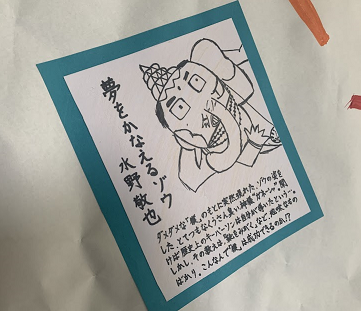 夢をかなえるゾウ
水野敬也
ダメダメな"僕"のもとに突然現れた、ゾウの姿を
した、とてつもなくうさん臭い神様"ガネーシャ"。聞
けば歴史上のキーパーソンは自分が導いたという…。
しかし、その教えは、「靴をみがく」など、地味なもの
ばかり。こんなんで"僕"は成功できるのか!?